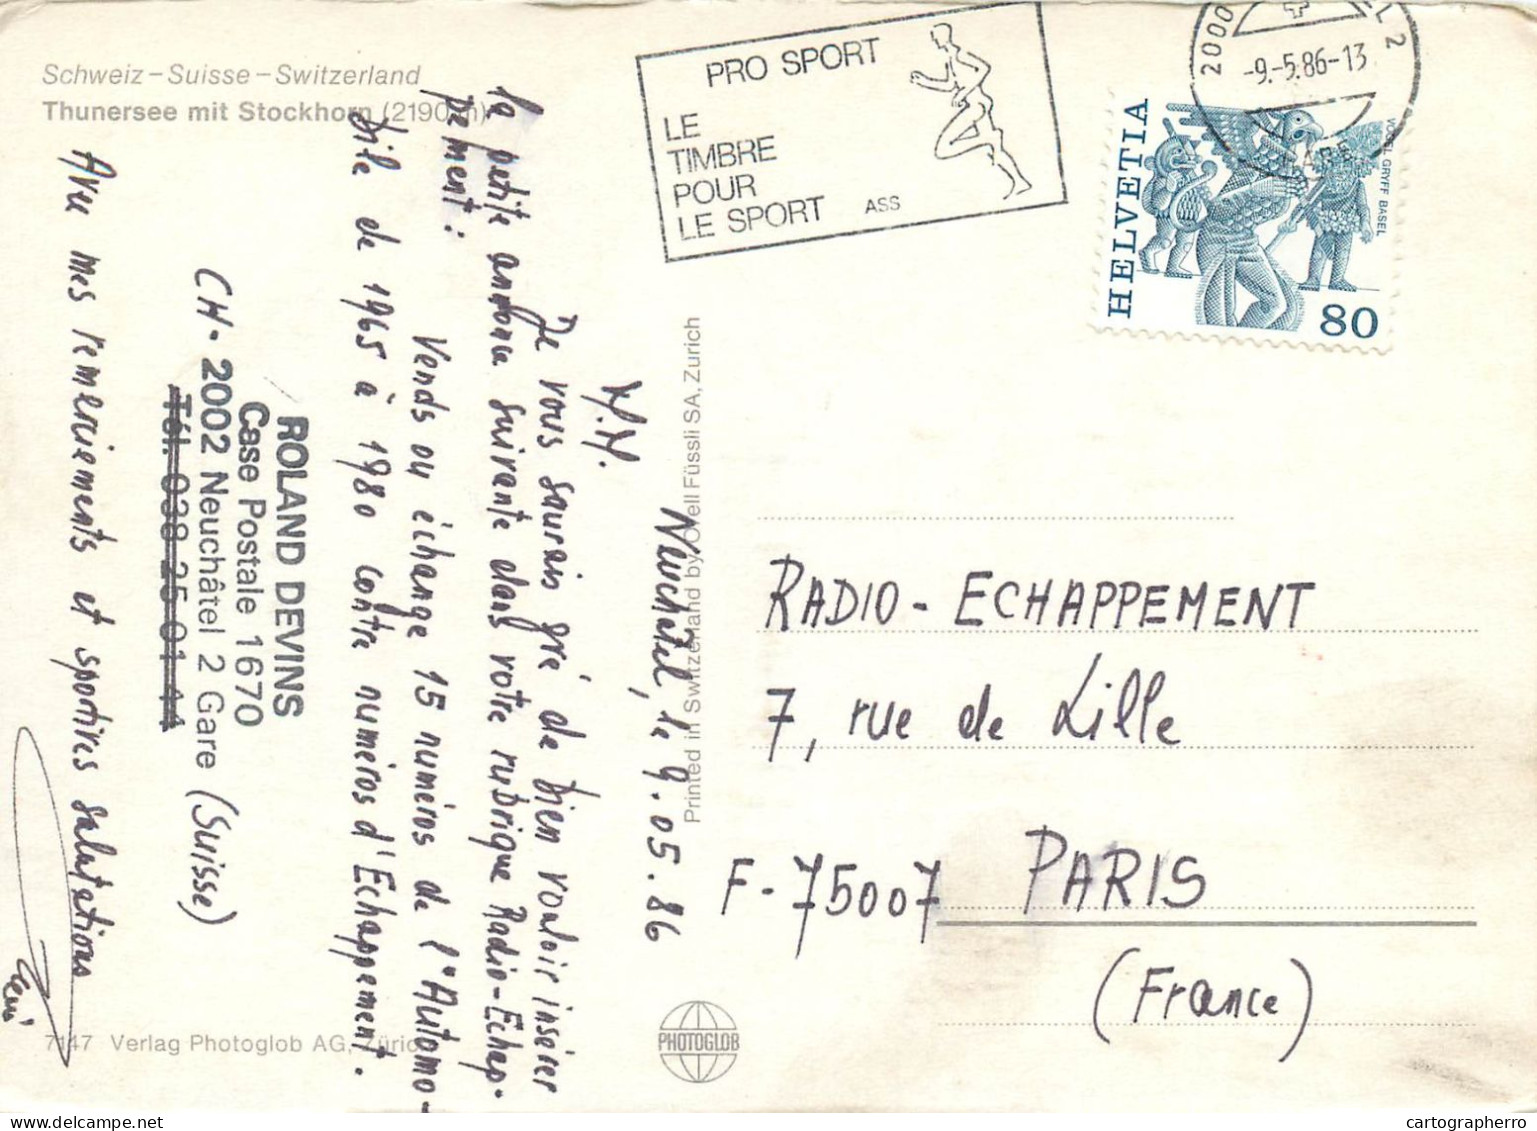 Schweiz – Suisse – Switzerland
Thunersee mit Stockhorn (2190 m)
PRO SPORT
LE
TIMBRE
POUR
LE SPORT ASS
2000
EL 2
-9.-5.86-13
HELVETIA
VOGEL GRYFF BASEL
80
Neuchâtel, le 9.05.86
M.M.
Je vous saurais gré de bien vouloir insérer
la petite annonce suivante dans votre rubrique Radio-Echap-
pement :
Vends ou échange 15 numéros de l'"Automo-
bile de 1965 à 1980 contre numéros d'Echappement.
ROLAND DEVINS
Case Postale 1670
CH-2002 Neuchâtel 2 Gare (Suisse)
Tél. 038 25 01 44
Avec mes remerciements et sportives salutations
Printed in Switzerland by Orell Füssli SA, Zurich
RADIO-ECHAPPEMENT
7, rue de Lille
F-75007 PARIS
(France)
7147 Verlag Photoglob AG, Zürich
PHOTOGLOB
delcampe.net
cartographerro